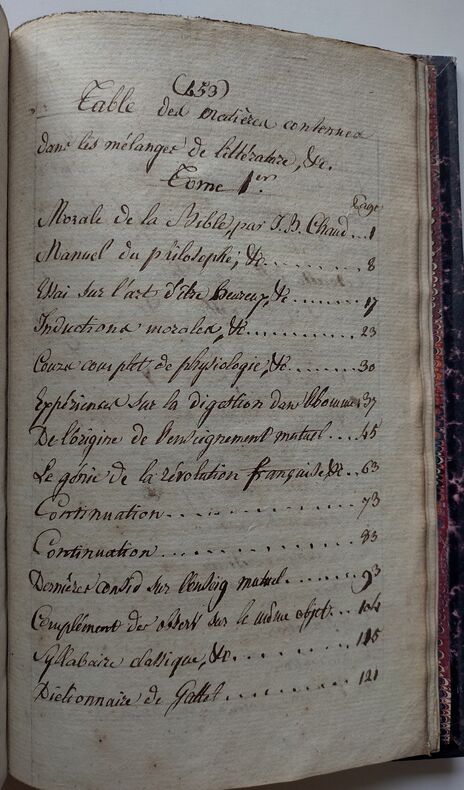 (153)
Table des matières contenues
dans les mélanges de littérature, &c.
Tome 1er.
Page
Morale de la Bible, par J. B. Chaud... 1
Manuel du philosophe, &c......... 8
Essai sur l'art d'être heureux, &c........ 17
Inductions morales, &c........... 23
Cours complet de physiologie, &c....... 30
Expériences sur la digestion dans l'homme. 37
De l'origine de l'enseignement mutuel.... 45
Le génie de la révolution française &c... 63
Continuation............. 73
Continuation............. 83
Dernières consid sur l'enseig mutuel....... 93
Complément des observ sur le même objet... 104
Syllabaire classique, &c......... 115
Dictionnaire de Gattel......... 121